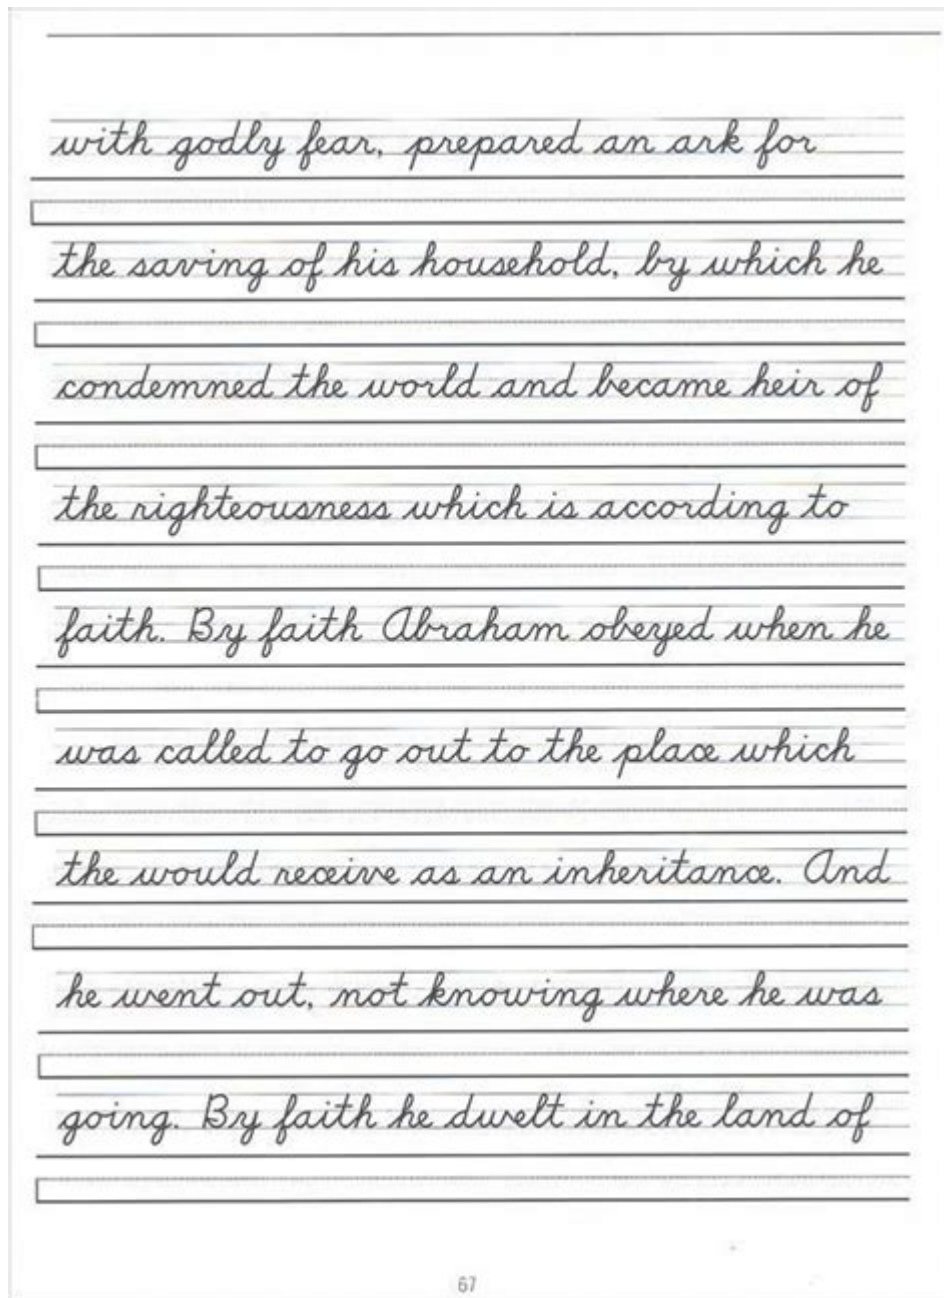 with godly fear, prepared an ark for
the saving of his household, by which he
condemned the world and became heir of
the righteousness which is according to
faith. By faith Abraham obeyed when he
was called to go out to the place which
the would receive as an inheritance. And
he went out, not knowing where he was
going. By faith he dwelt in the land of
67